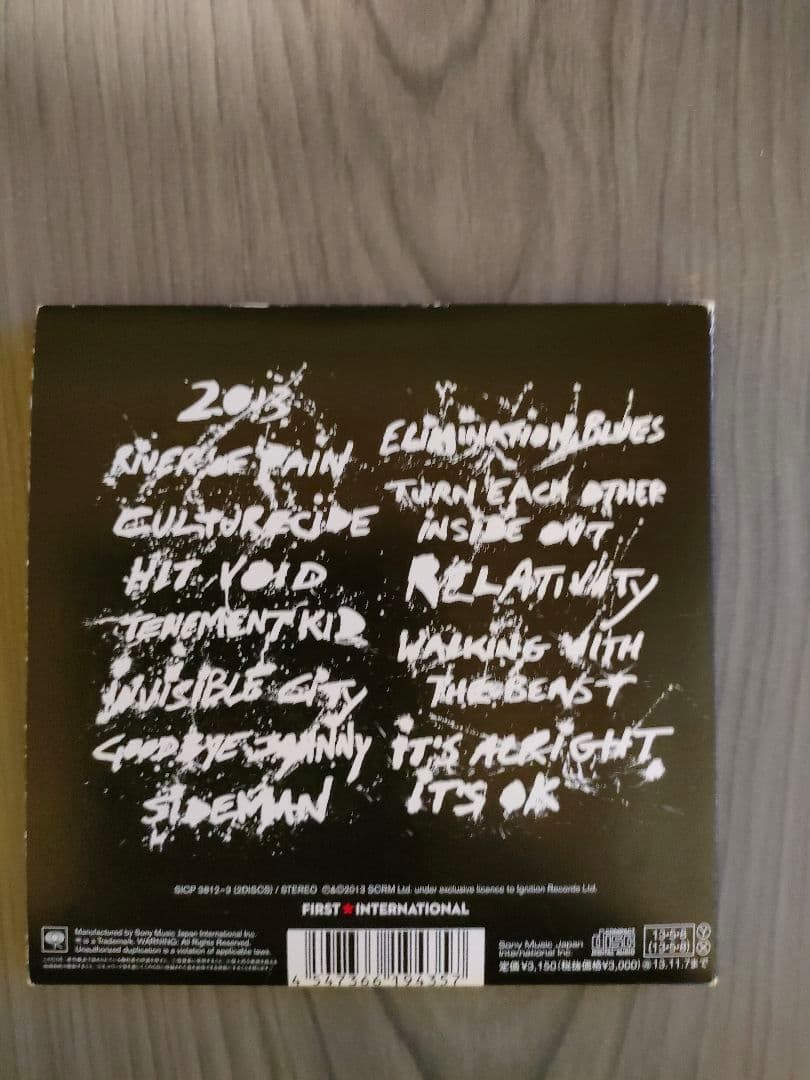 2013
RIVER OF PAIN
CULTURECIDE
HIT VOID
TENEMENT KID
INVISIBLE CITY
GOODBYE JOHNNY
SIDEMAN
ELIMINATION BLUES
TURN EACH OTHER
INSIDE OUT
RELATIVITY
WALKING WITH
THE BEAST
IT'S ALRIGHT,
IT'S OK
SICP 3812~3 (2DISCS) / STEREO ℗&©2013 SCRM Ltd. under exclusive licence to Ignition Records Ltd.
FIRST★INTERNATIONAL
Manufactured by Sony Music Japan International Inc.
is a Trademark. WARNING: All Rights Reserved.
Unauthorized duplication is a violation of applicable laws.
4 547366 194357
Sony Music Japan
International Inc.
COMPACT
disc
DIGITAL AUDIO
13·5·8 Ⓨ
(13·5·8) Ⓧ
定価¥3,150(税抜価格¥3,000) 13.11.7まで